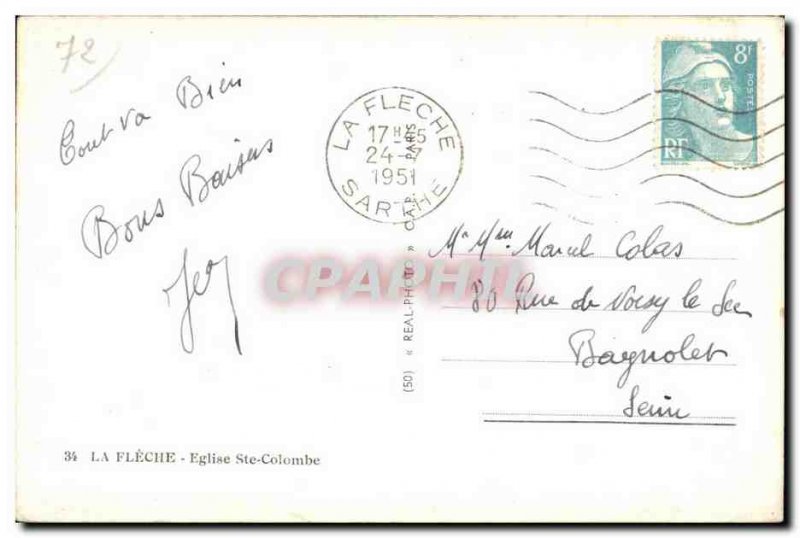 72
Tout va Bien
Bons Baisers
LA FLECHE
17 H 15
24 -7
1951
SARTHE
8F
POSTES
RF
Mr Mme Marcel Colas
80 Rue de Noisy le Sec
Bagnolet
Seine
CPAPHIL
(50) « REAL-PHOTO » C.A.P. PARIS
34 LA FLÈCHE - Eglise Ste-Colombe